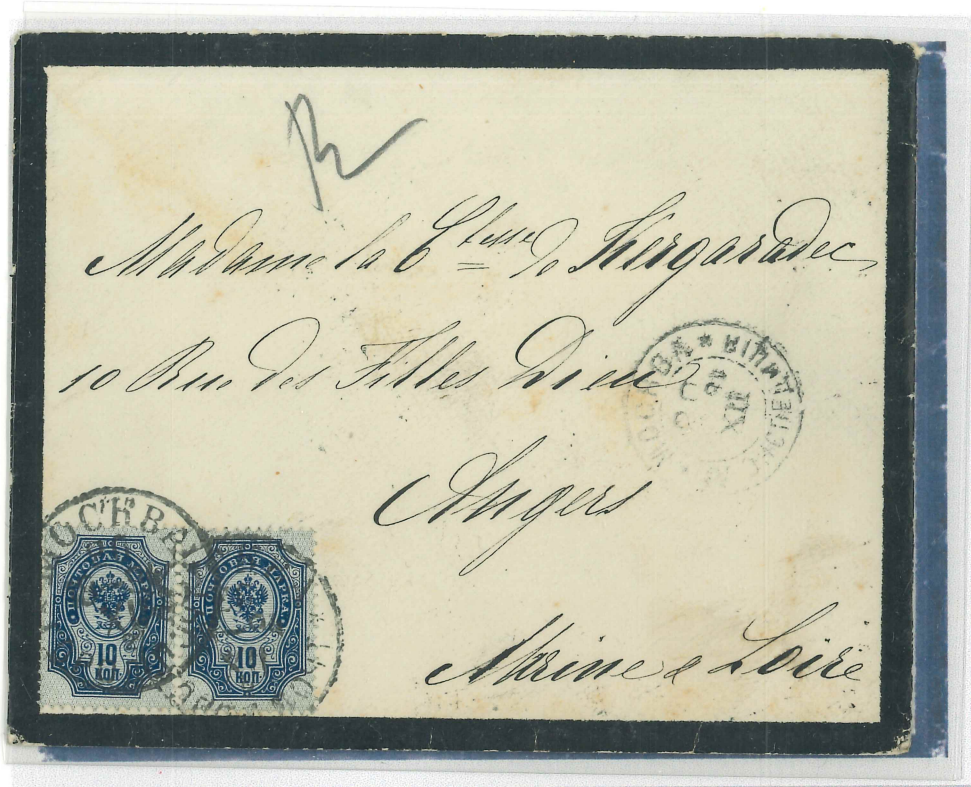 R
Madame la Ctesse de Kergaradec
10 Rue des Filles Dieu
Angers
Maine & Loire
МОСКВА
XII
МОСКВА
ПОЧТОВАЯ МАРКА
10
КОП.
ПОЧТОВАЯ МАРКА
10
КОП.